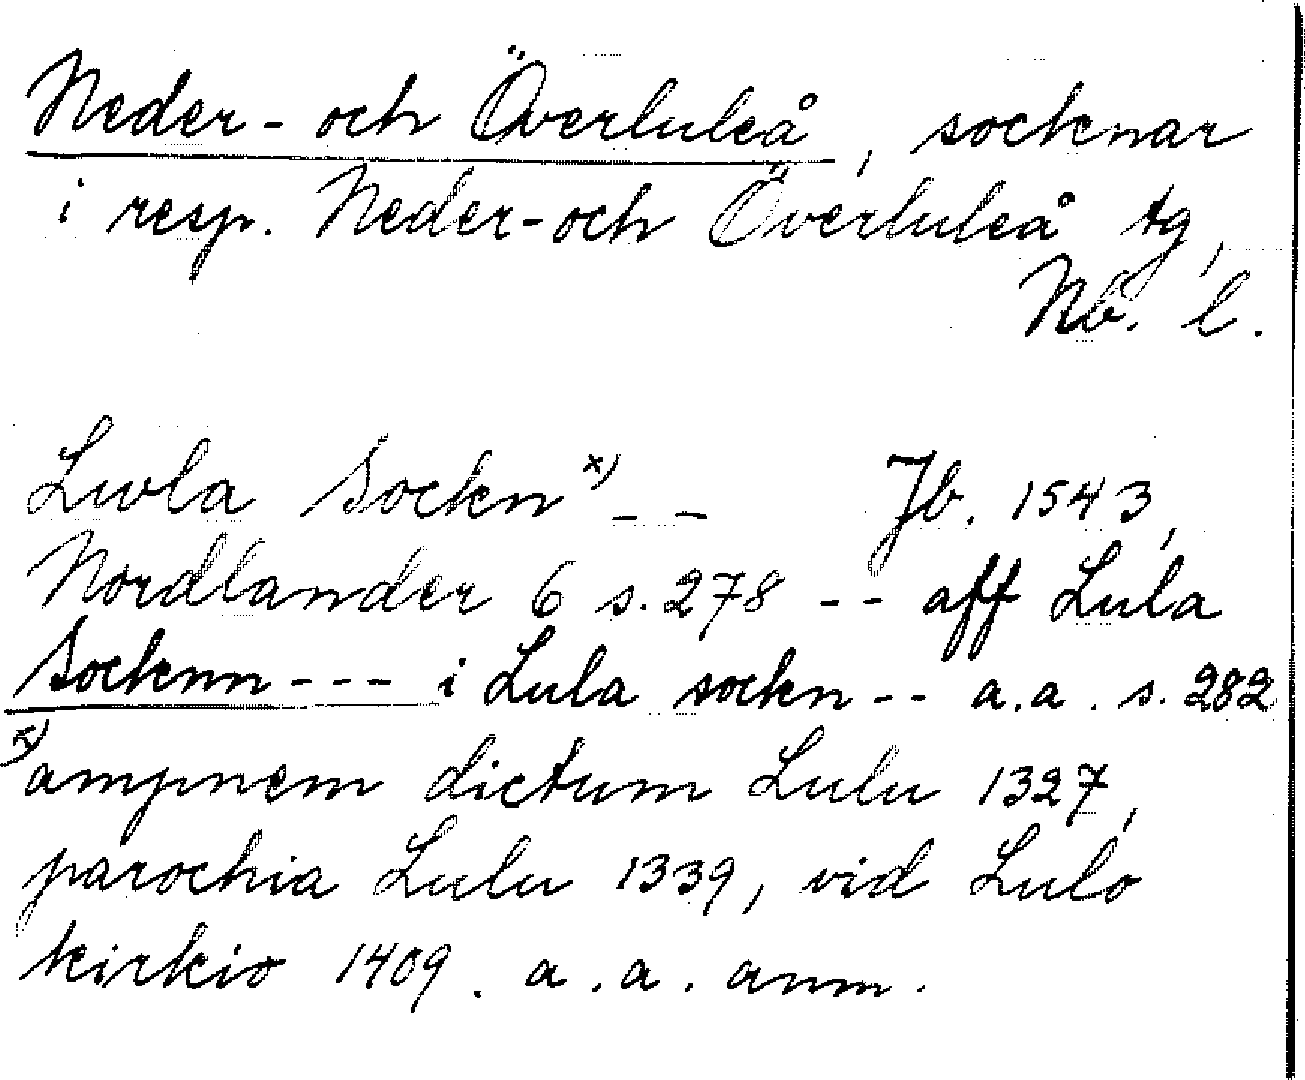 Neder- och Överluleå, socknar
i resp. Neder- och Överluleå tg,
Nb. l.
Luvla Sockn x) -- Jb. 1543,
Nordlander 6 s. 278 -- aff Lula
Socknn --- i Lula sockn -- a.a. s. 282
x) ampnem dictum Lulu 1327,
parochia Lulu 1339, vid Lulo
kirkio 1409. a.a. anm.